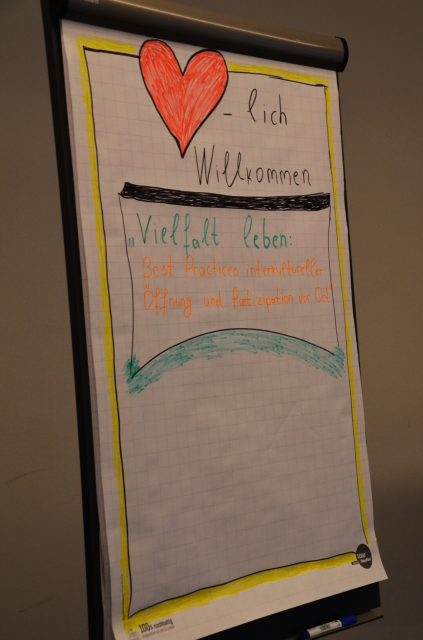 - lich
Willkommen
„Vielfalt leben:
Best Practices interkultureller
Öffnung und Partizipation vor Ort"
100%